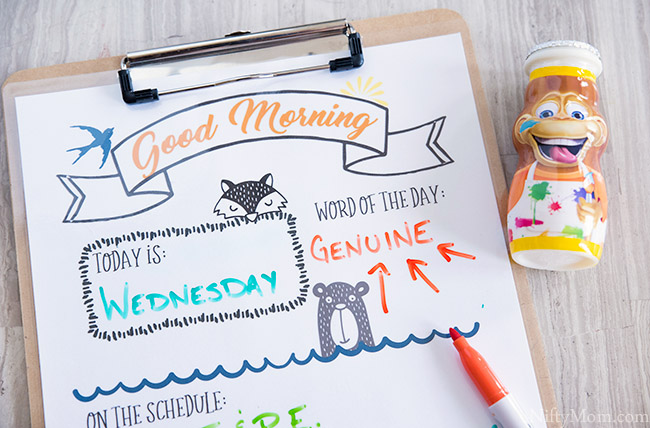 Good Morning
TODAY IS:
WEDNESDAY
WORD OF THE DAY:
GENUINE
ON THE SCHEDULE:
NiftyMom.com